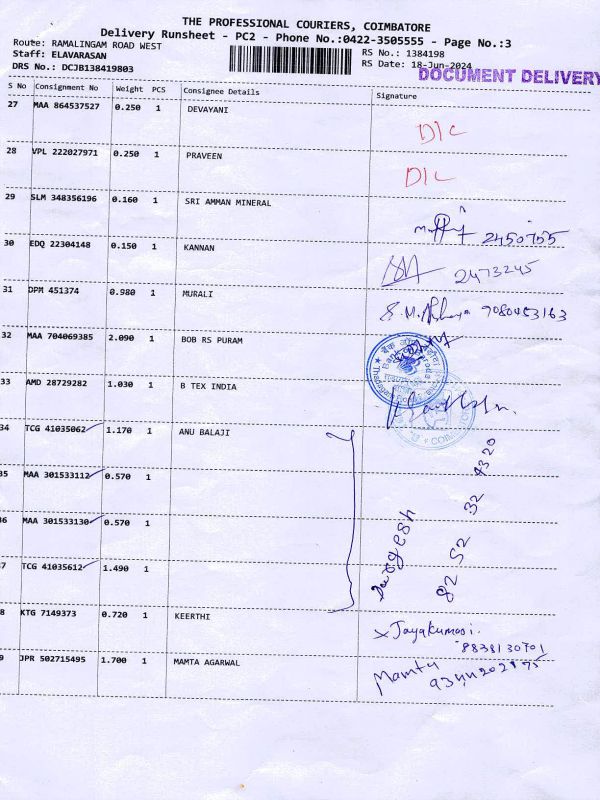 THE PROFESSIONAL COURIERS, COIMBATORE
Delivery Runsheet - PC2 - Phone No.:0422-3505555 - Page No.:3
Route: RAMALINGAM ROAD WEST
Staff: ELAVARASAN
DRS No.: DCJB138419803
RS No.: 1384198
RS Date: 18-Jun-2024
DOCUMENT DELIVERY
S No Consignment No Weight PCS Consignee Details Signature
27 MAA 864537527 0.250 1 DEVAYANI D/L
28 VPL 222027971 0.250 1 PRAVEEN D/L
29 SLM 348356196 0.160 1 SRI AMMAN MINERAL 2450755
30 EDQ 22304148 0.150 1 KANNAN 2473245
31 DPM 451374 0.980 1 MURALI 7080453163
32 MAA 704069385 2.090 1 BOB RS PURAM
33 AMD 28729282 1.030 1 B TEX INDIA
34 TCG 41035062 1.170 1 ANU BALAJI
35 MAA 301533112 0.570 1
36 MAA 301533130 0.570 1
37 TCG 41035612 1.490 1
82 52 32 4320
8 KTG 7149373 0.720 1 KEERTHI Jayakumari.
8838130701
9 JPR 502715495 1.700 1 MAMTA AGARWAL Mamta